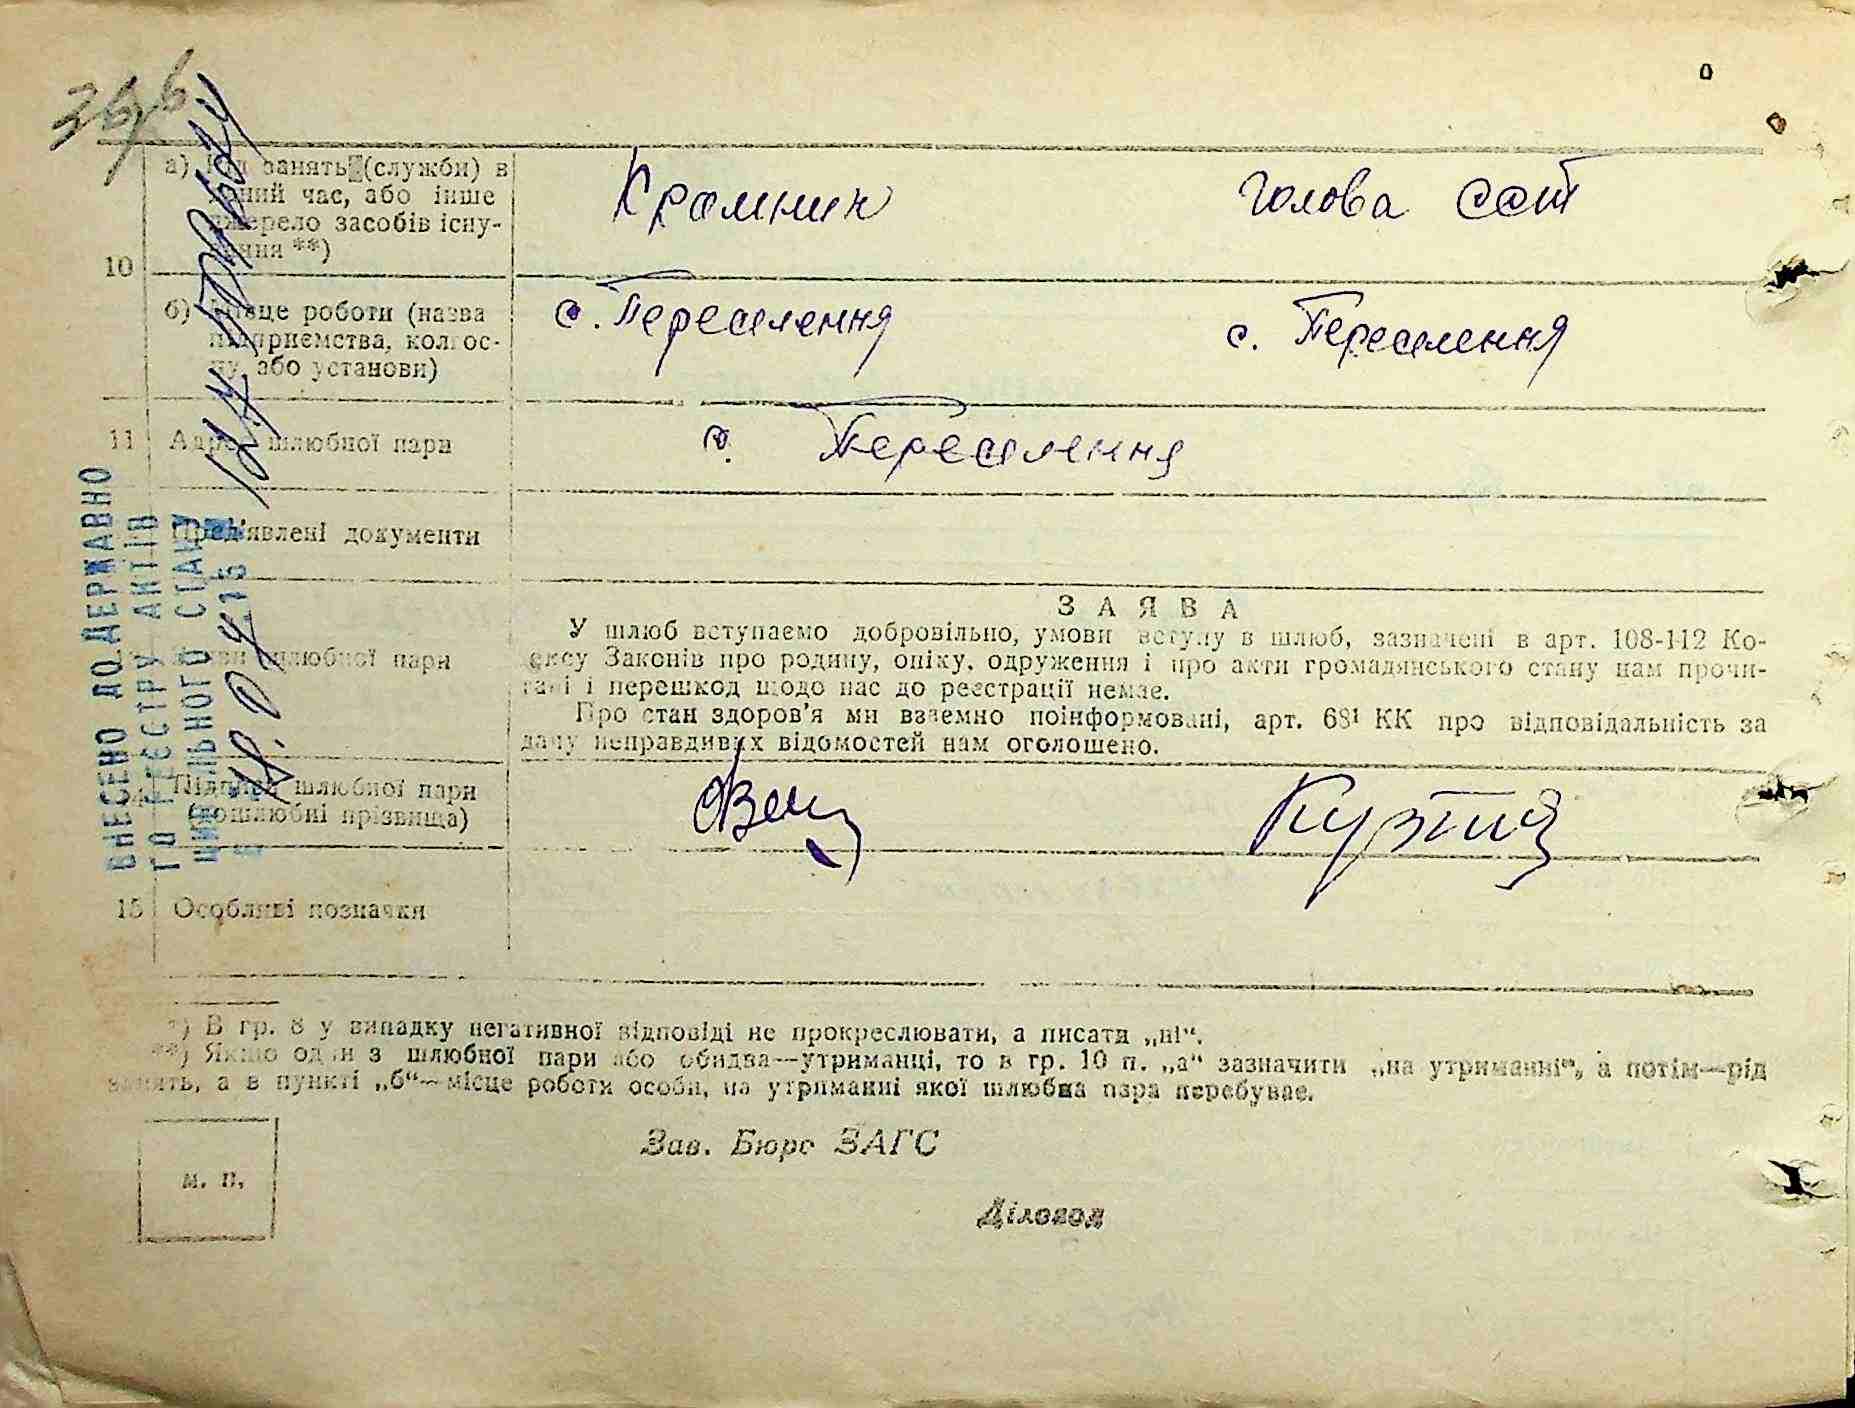 а) Рід занять (службн) в
даний час, або інше
джерело засобів існу-
вання **)
Крамник
голова
10
б) Місце роботи (назва
підприємства, колгос-
пу, або установи)
с. Переселення
с. Переселення
11 Адреса шлюбної пари
с. Переселення
Пред'явлені документи
ЗАЯВА
У шлюб вступаємо добровільно, умови вступу в шлюб, зазначені в арт. 108-112 Ко-
дексу Законів про родину, опіку, одруження і про акти громадянського стану нам прочи-
тані і перешкод щодо нас до реєстрації немає.
Про стан здоров'я ми взаємно поінформовані, арт. 68¹ КК про відповідальність за
дачу неправдивих відомостей нам оголошено.
шлюбної пари
Підписи шлюбної пари
(дошлюбні прізвища)
15 Особливі позначки
ВНЕСЕНО ДО ДЕРЖАВНО
ГО РЕЄСТРУ АКТІВ
ЦИВІЛЬНОГО СТАНУ
*) В гр. 8 у випадку негативної відповіді не прокреслювати, а писати „ні“.
**) Якщо один з шлюбної пари або обидва—утриманці, то в гр. 10 п. „а“ зазначити „на утриманні“, а потім—рід
занять, а в пункті „б“—місце роботи особи, на утриманні якої шлюбна пара перебуває.
Зав. Бюро ЗАГС
м. п.
Діловод